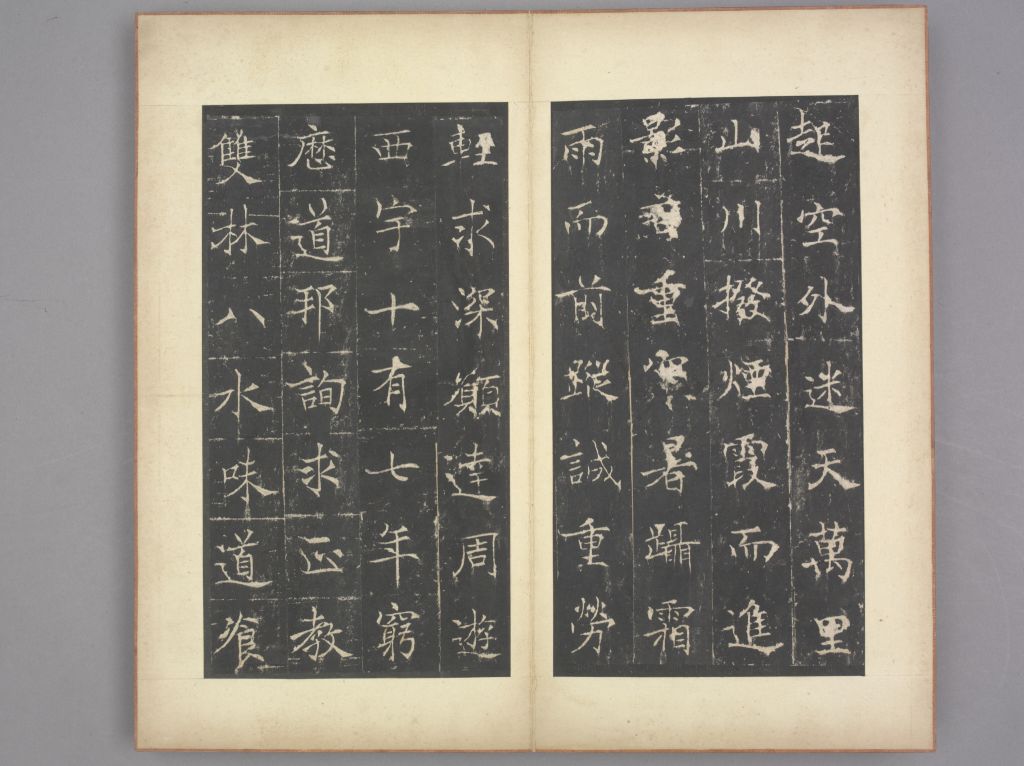 起空外迷天萬里
山川撥煙霞而進
影百重寒暑躡霜
雨而前蹤誠重勞
輕求深願達周遊
西宇十有七年窮
歷道邦詢求正教
雙林八水味道飡